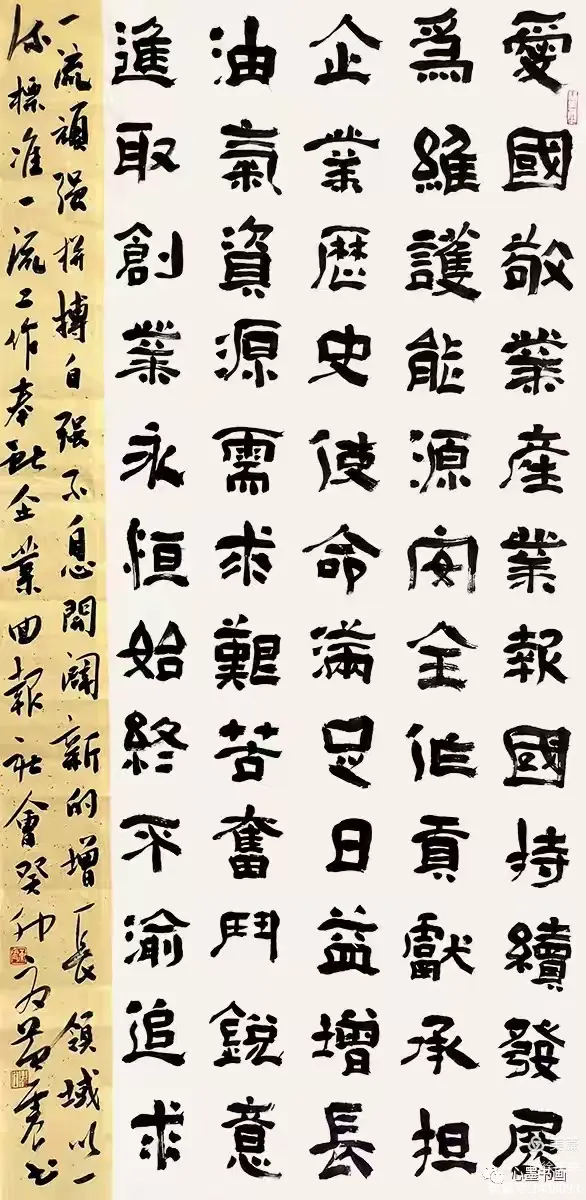 愛國敬業産業報國持續發展
爲維護能源安全作貢獻承担
企業歷史使命滿足日益增長
油氣資源需求艱苦奮鬥銳意
進取創業永恒始終不渝追求
一流頑强拼搏自强不息開闢新的增長領域以一
流標准一流工作奉献企業回報社會癸卯
心墨书画